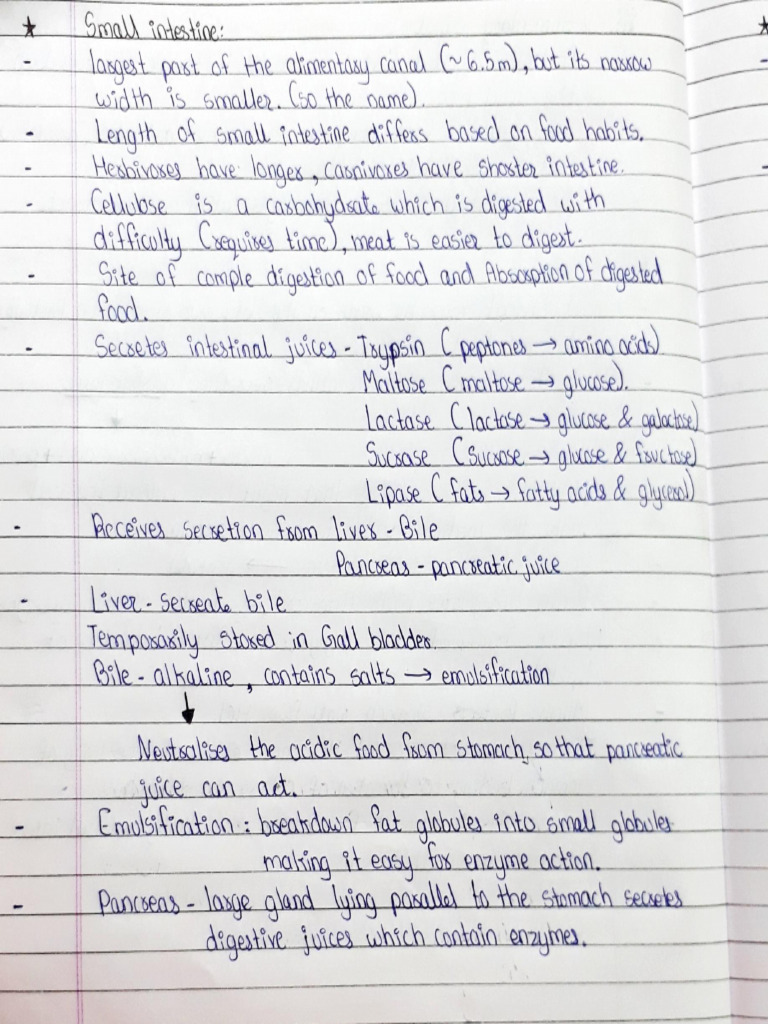 ★ Small intestine:
- largest part of the alimentary canal (~6.5m), but its narrow
width is smaller. (so the name).
- Length of small intestine differs based on food habits.
- Herbivores have longer, carnivores have shorter intestine.
- Cellulose is a carbohydrate which is digested with
difficulty (requires time), meat is easier to digest.
- Site of comple digestion of food and Absorption of digested
food.
- Secretes intestinal juices - Trypsin (peptones → amino acids)
Maltose (maltose → glucose).
Lactase (lactose → glucose & galactose)
Sucrase (Sucrose → glucose & fructose)
Lipase (fats → fatty acids & glycerol)
- Receives secretion from liver - Bile
Pancreas - pancreatic juice
- Liver - secreate bile
Temporarily stored in Gall bladder.
Bile - alkaline, contains salts → emulsification
↓
Neutralises the acidic food from stomach, so that pancreatic
juice can act.
- Emulsification : breakdown fat globules into small globules
making it easy for enzyme action.
- Pancreas - large gland lying parallel to the stomach secretes
digestive juices which contain enzymes.